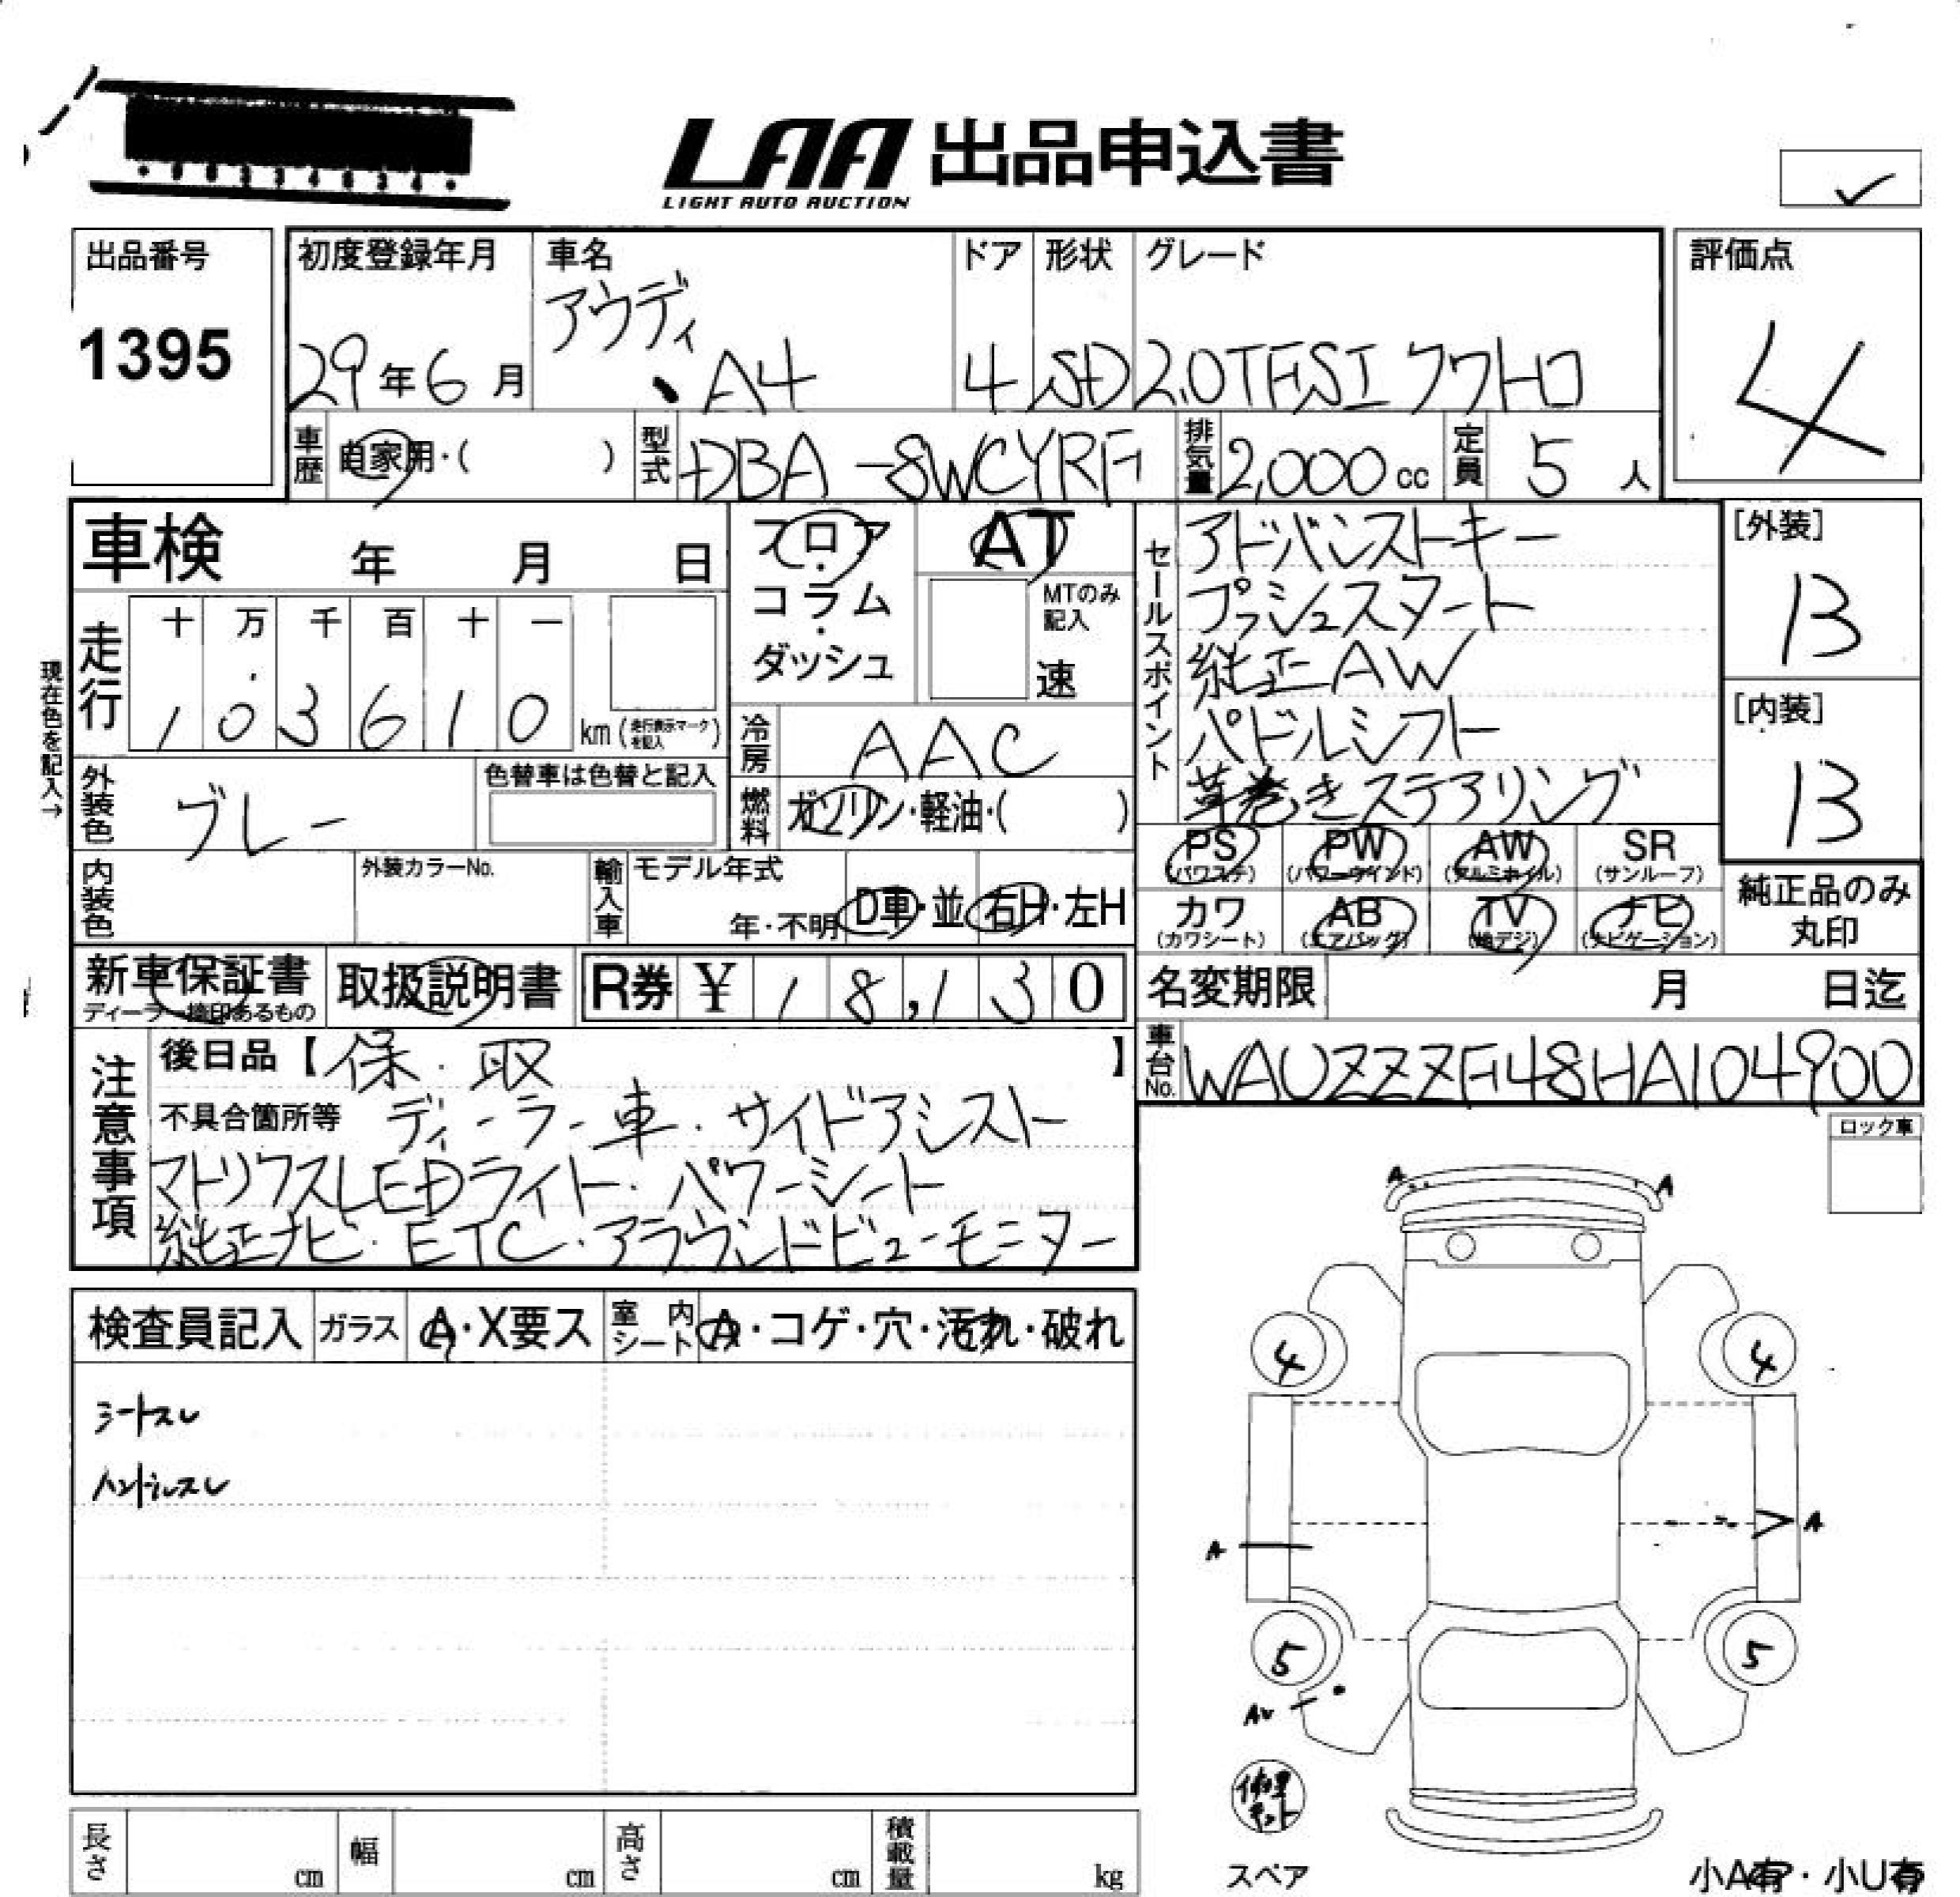 LAA 出品申込書
LIGHT AUTO AUCTION
出品番号
1395
初度登録年月
29年6月
車名
アウディ
A4
ドア
4
形状
SD
グレード
2.0TFSI クワトロ
評価点
4
車歴 自家用・( )
型式 DBA-8WCYRF
排気量 2,000cc
定員 5人
車検 年 月 日
フロア・コラム・ダッシュ
AT
MTのみ記入
速
現在色を記入→
走行
十 万 千 百 十 一
1 0 3 6 1 0 km (走行表示マークを記入)
冷房 AAC
外装色 グレー
色替車は色替と記入
燃料 ガソリン・軽油・( )
内装色
外装カラーNo.
輸入車 モデル年式
年・不明 D車・並 右H・左H
セールスポイント
アドバンストキー
プッシュスタート
純正AW
パドルシフト
革巻きステアリング
[外装]
B
[内装]
B
PS PW AW SR
(パワステ) (パワーウインド) (アルミホイル) (サンルーフ)
カワ AB TV ナビ
(カワシート) (エアバッグ) (地デジ) (ナビゲーション)
純正品のみ
丸印
新車保証書
ディーラー捺印あるもの
取扱説明書
R券 ¥ 18,130
名変期限 月 日迄
車台No. WAUZZZF48HA104900
注意事項
後日品【保・取】
不具合箇所等 ディーラー車・サイドアシスト
マトリクスLEDライト・パワーシート
純正ナビ・ETC・アラウンドビューモニター
ロック車
検査員記入 ガラス A・X要ス 室内シート A・コゲ・穴・汚れ・破れ
シートスレ
ハンドルスレ
A A
4 4
A A
5 5
AU
修理キット
スペア
小A有・小U有
長さ cm 幅 cm 高さ cm 積載量 kg